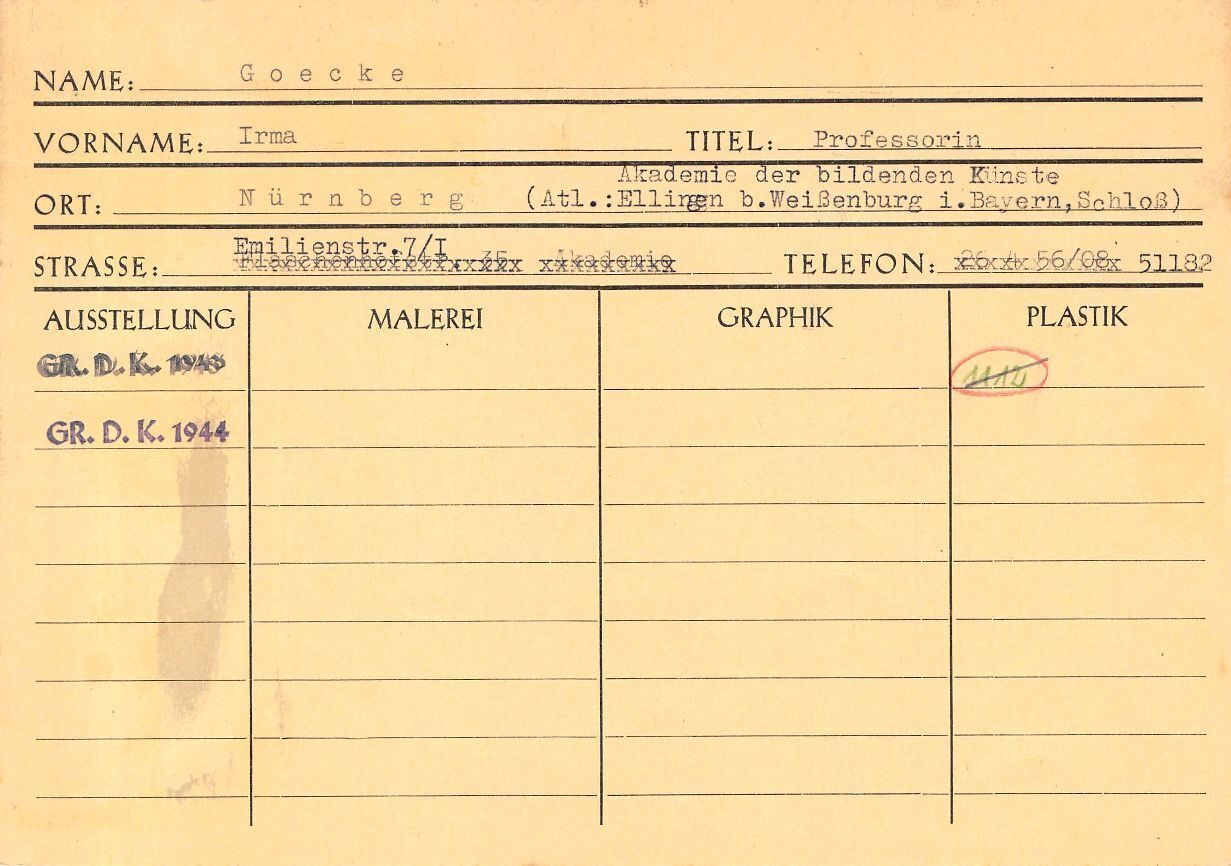 NAME: G o e c k e
VORNAME: Irma TITEL: Professorin
Akademie der bildenden Künste
ORT: N ü r n b e r g (Atl.:Ellingen b.Weißenburg i.Bayern,Schloß)
Emilienstr.7/I
STRASSE: Flaschenhofstr. 35 Akademie TELEFON: 56/08 51182
AUSSTELLUNG MALEREI GRAPHIK PLASTIK
GR. D. K. 1943 1112
GR. D. K. 1944